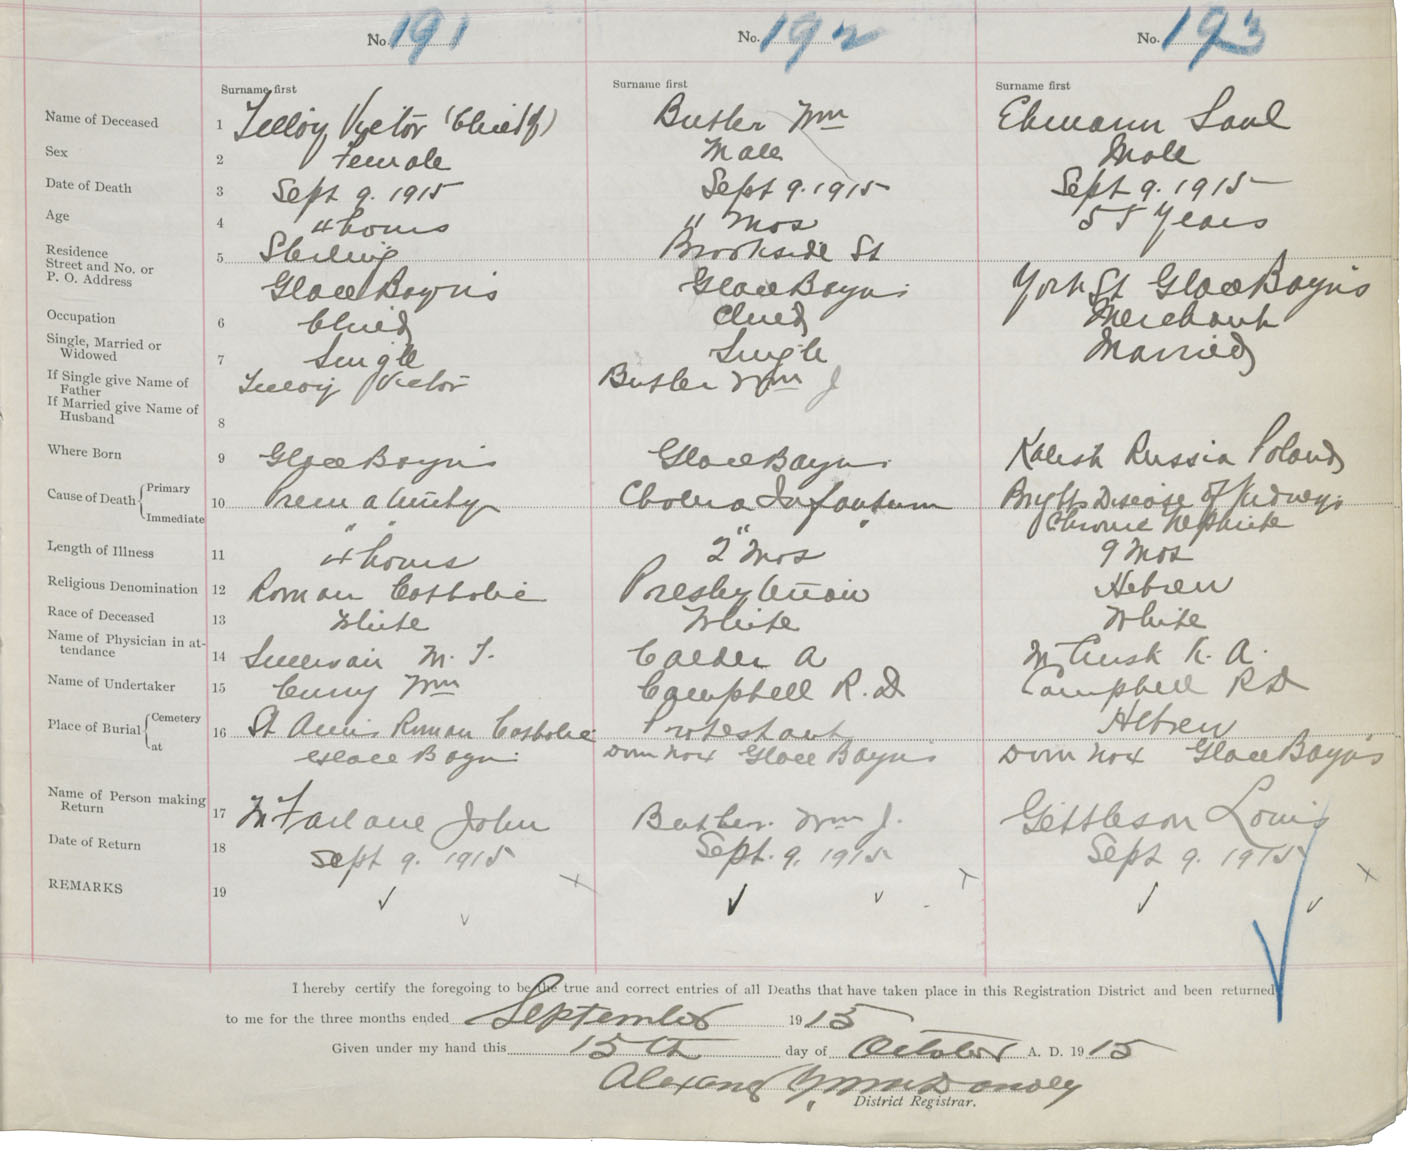 No. 191 No. 192 No. 193
Surname first Surname first Surname first
Name of Deceased 1 Victor (Child of) Butler Wm Ehmann Saul
Sex 2 Female Male Male
Date of Death 3 Sept 9. 1915 Sept 9. 1915 Sept 9. 1915
Age 4 4 hours 11 Mos 55 Years
Residence 5 Sterling Brookside St
Street and No. or
P. O. Address Glace Bay NS Glace Bay NS York St Glace Bay NS
Occupation 6 Child Child Merchant
Single, Married or
Widowed 7 Single Single Married
If Single give Name of
Father Victor Butler Wm J
If Married give Name of
Husband 8
Where Born 9 Glace Bay NS Glace Bay NS Kalish Russia Poland
Cause of Death Primary 10 Prematurity Cholera Infantum Brights Disease of Kidneys
Immediate " " " " Chronic Nephritis
Length of Illness 11 4 hours 2 Mos 9 Mos
Religious Denomination 12 Roman Catholic Presbyterian Hebrew
Race of Deceased 13 White White White
Name of Physician in at-
tendance 14 Sullivan M. T. Calder A McCuish K. A.
Name of Undertaker 15 Curry Wm Campbell R. D Campbell R D
Place of Burial Cemetery 16 St Anns Roman Catholic Protestant Hebrew
at Glace Bay NS Dom No 4 Glace Bay NS Dom No 4 Glace Bay NS
Name of Person making
Return 17 McFarlane John Butler Wm J. Gittleson Louis
Date of Return 18 Sept 9. 1915 Sept. 9. 1915 Sept 9. 1915
REMARKS 19
I hereby certify the foregoing to be the true and correct entries of all Deaths that have taken place in this Registration District and been returned
to me for the three months ended September 1915
Given under my hand this 15th day of October A. D. 1915
District Registrar.